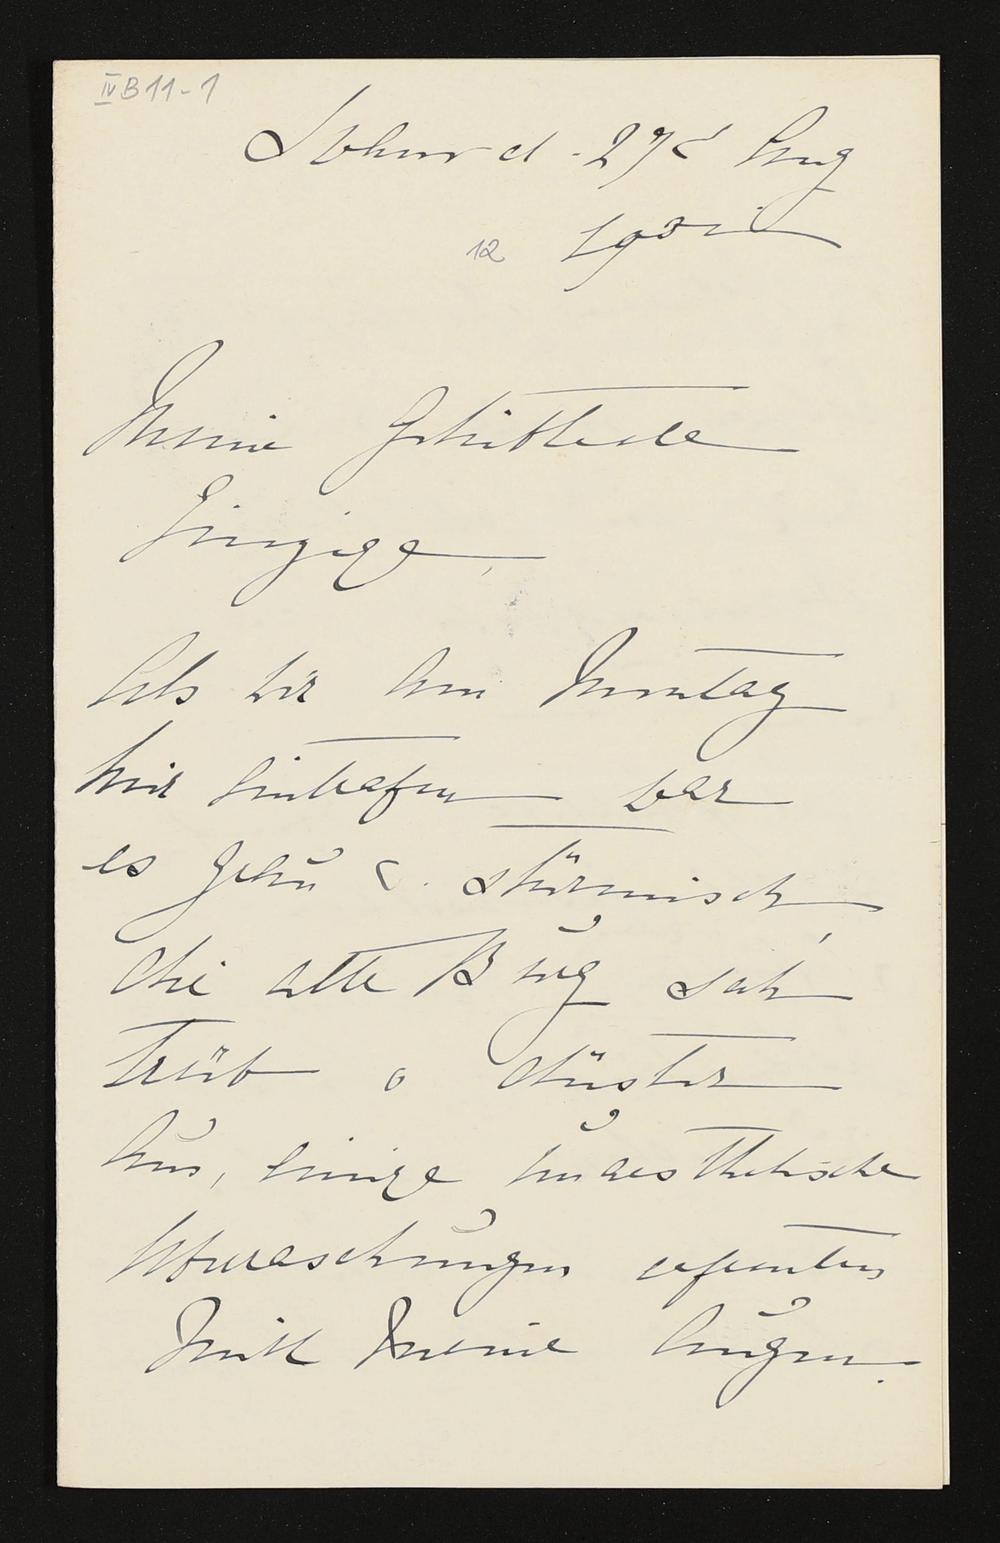 IV B 11-1
d. 27t Aug
12 1901
Meine Geliebteste
Einzige,
Als wir am Montag
hier eintrafen war
es grau u. stürmisch,
die alte Burg sah
trüb u düster
aus, einige unaesthetische
Überaschungen
meine Augen.